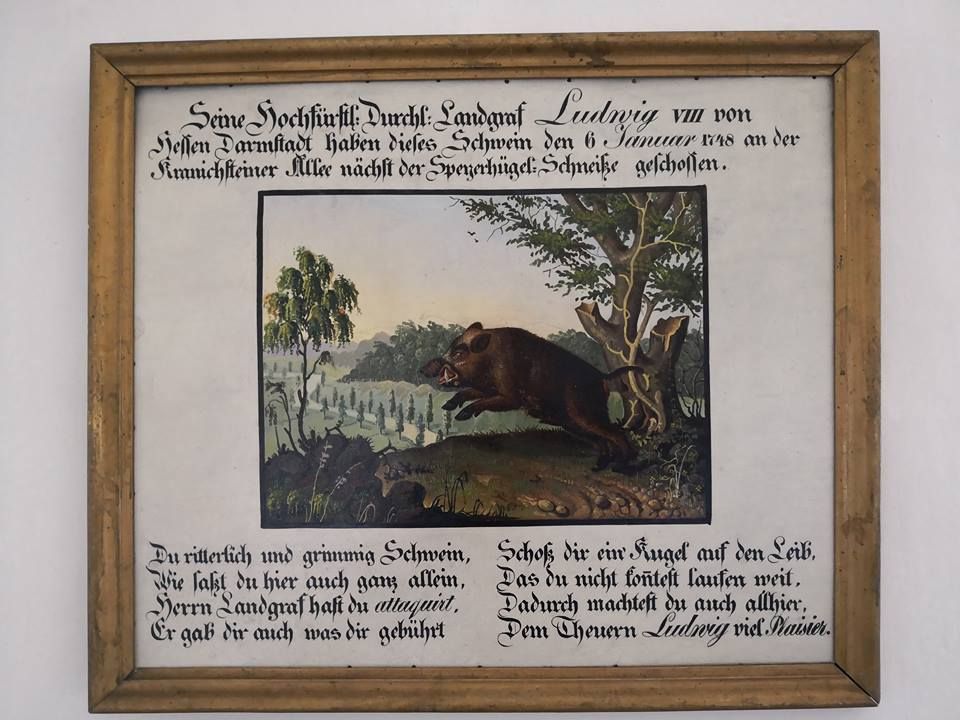 Seine Hochfürstl: Durchl: Landgraf Ludwig VIII von
Hessen Darmstadt haben dieses Schwein den 6 Januar 1748 an der
Kranichsteiner Allee nächst der Speyerhügel-Schneiße geschossen.
Du ritterlich und grimmig Schwein,
Wie saßt du hier auch ganz allein,
Herrn Landgraf hast du attaquirt,
Er gab dir auch was dir gebührt
Schoß dir ein Kugel auf den Leib,
Das du nicht kon̄test laufen weit,
Dadurch machtest du auch allhier,
Dem Theuern Ludwig viel Plaisier.